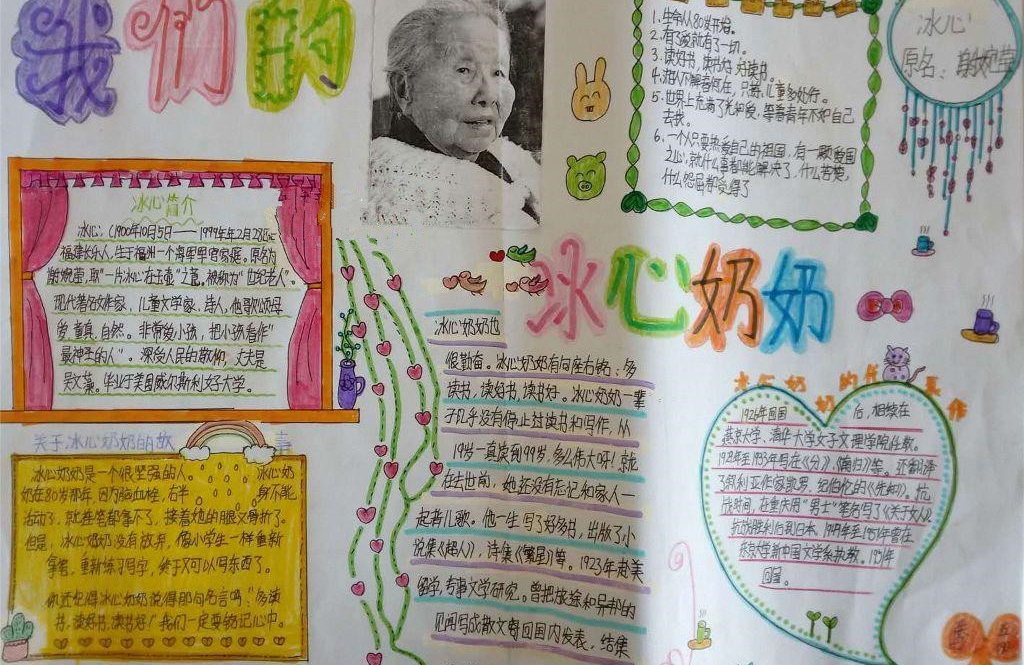 我们的
冰心奶奶
冰心简介
冰心(1900年10月5日——1999年年2月28日)
福建长乐人,生于福州一个海军军官家庭。原名
谢婉莹,取"一片冰心在玉壶"之意,被称为"世纪老人"。
现代著名作家、儿童文学家、诗人,他歌颂母
爱、童真、自然。非常爱小孩,把小孩看作"
最神圣的人"。深受人民的敬仰,丈夫是
吴文藻。毕业于美国威尔斯利女子大学。
关于冰心奶奶的故事
冰心奶奶是一个很坚强的人。冰心奶
奶在80岁那年,因为脑血栓,右半身不能
活动了,就连笔都拿不了,接着她的腿又骨折了。
但是,冰心奶奶没有放弃,像小学生一样重新
拿笔,重新练习写字,终于又可以写东西了。
你还记得冰心奶奶说得那句名言吗?"多读
书,读好书,读书好!"我们一定要铭记心中。
1.生命从80岁开始。
2.有了爱就有了一切。
3.读好书,读书好,好读书。
5.世界上充满了光和爱,等着青年不知自己
去找。
6.一个人只要热爱自己的祖国,有一颗爱国
之心,就什么事都能解决了,什么苦楚,
什么怨屈都受得了
冰心
原名:谢婉莹
冰心奶奶也
很勤奋。冰心奶奶有句座右铭:多
读书,读好书,读书好。冰心奶奶一辈
子几乎没有停止过读书和写作,从
19岁一直读到99岁,多么伟大呀!就
在去世前,她还没有忘记和家人一
起看儿歌。他一生写了好多书,出版了小
说集《超人》,诗集《繁星》等。1923年赴美
留学,专事文学研究。曾把旅途和异邦的
见闻写成散文寄回国内发表,结集
冰心奶奶的代表作
1926年回国后,相续在
燕京大学、清华大学女子文理学院任教。
1929年至1933年写有《分》,《南归》等。还翻译
了叙利亚作家凯罗·纪伯伦的《先知》。抗
战时间,在重庆用"男士"笔名写了《关于女人》
抗战胜利后到日本,1949年至1951年曾在
东京大学新中国文学系执教。1951年
回国。